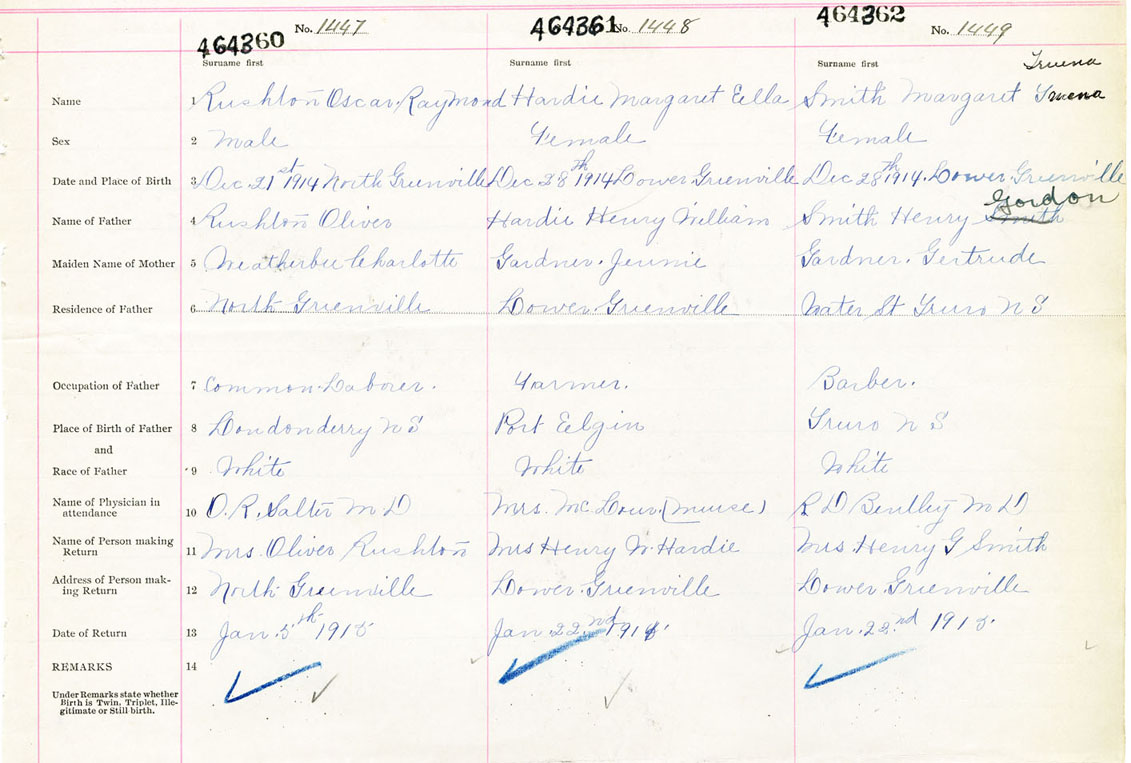 464360 No. 1447 464361 No. 1448 464362 No. 1449
Surname first Surname first Surname first Truena
Name 1 Rushton Oscar Raymond Hardie Margaret Eella Smith Margaret Truena
Sex 2 Male Female Female
Date and Place of Birth 3 Dec. 21st 1914 North Greenville Dec 28th 1914 Lower Greenville Dec 28th 1914. Lower Greenville
Gordon
Name of Father 4 Rushton Oliver Hardie Henry William Smith Henry Smith
Maiden Name of Mother 5 Weatherbee Charlotte Gardner. Jennie Gardner. Gertrude
Residence of Father 6 North Greenville Lower Greenville Water St Truro N S
Occupation of Father 7 Common Laborer. Farmer. Barber.
Place of Birth of Father 8 Londonderry N S Port Eelgin Truro N S
and
Race of Father 9 White White White
Name of Physician in
attendance 10 D. R. Salter M D Mrs. Mc (nurse) R D Bentley M D
Name of Person making
Return 11 Mrs. Oliver Rushton Mrs Henry W. Hardie Mrs Henry G Smith
Address of Person mak-
ing Return 12 North Greenville Lower Greenville Lower Greenville
Date of Return 13 Jan. 5th 1915 Jan. 22nd 1915. Jan. 22nd 1915.
REMARKS 14
Under Remarks state whether
Birth is Twin, Triplet, Ille-
gitimate or Still birth.